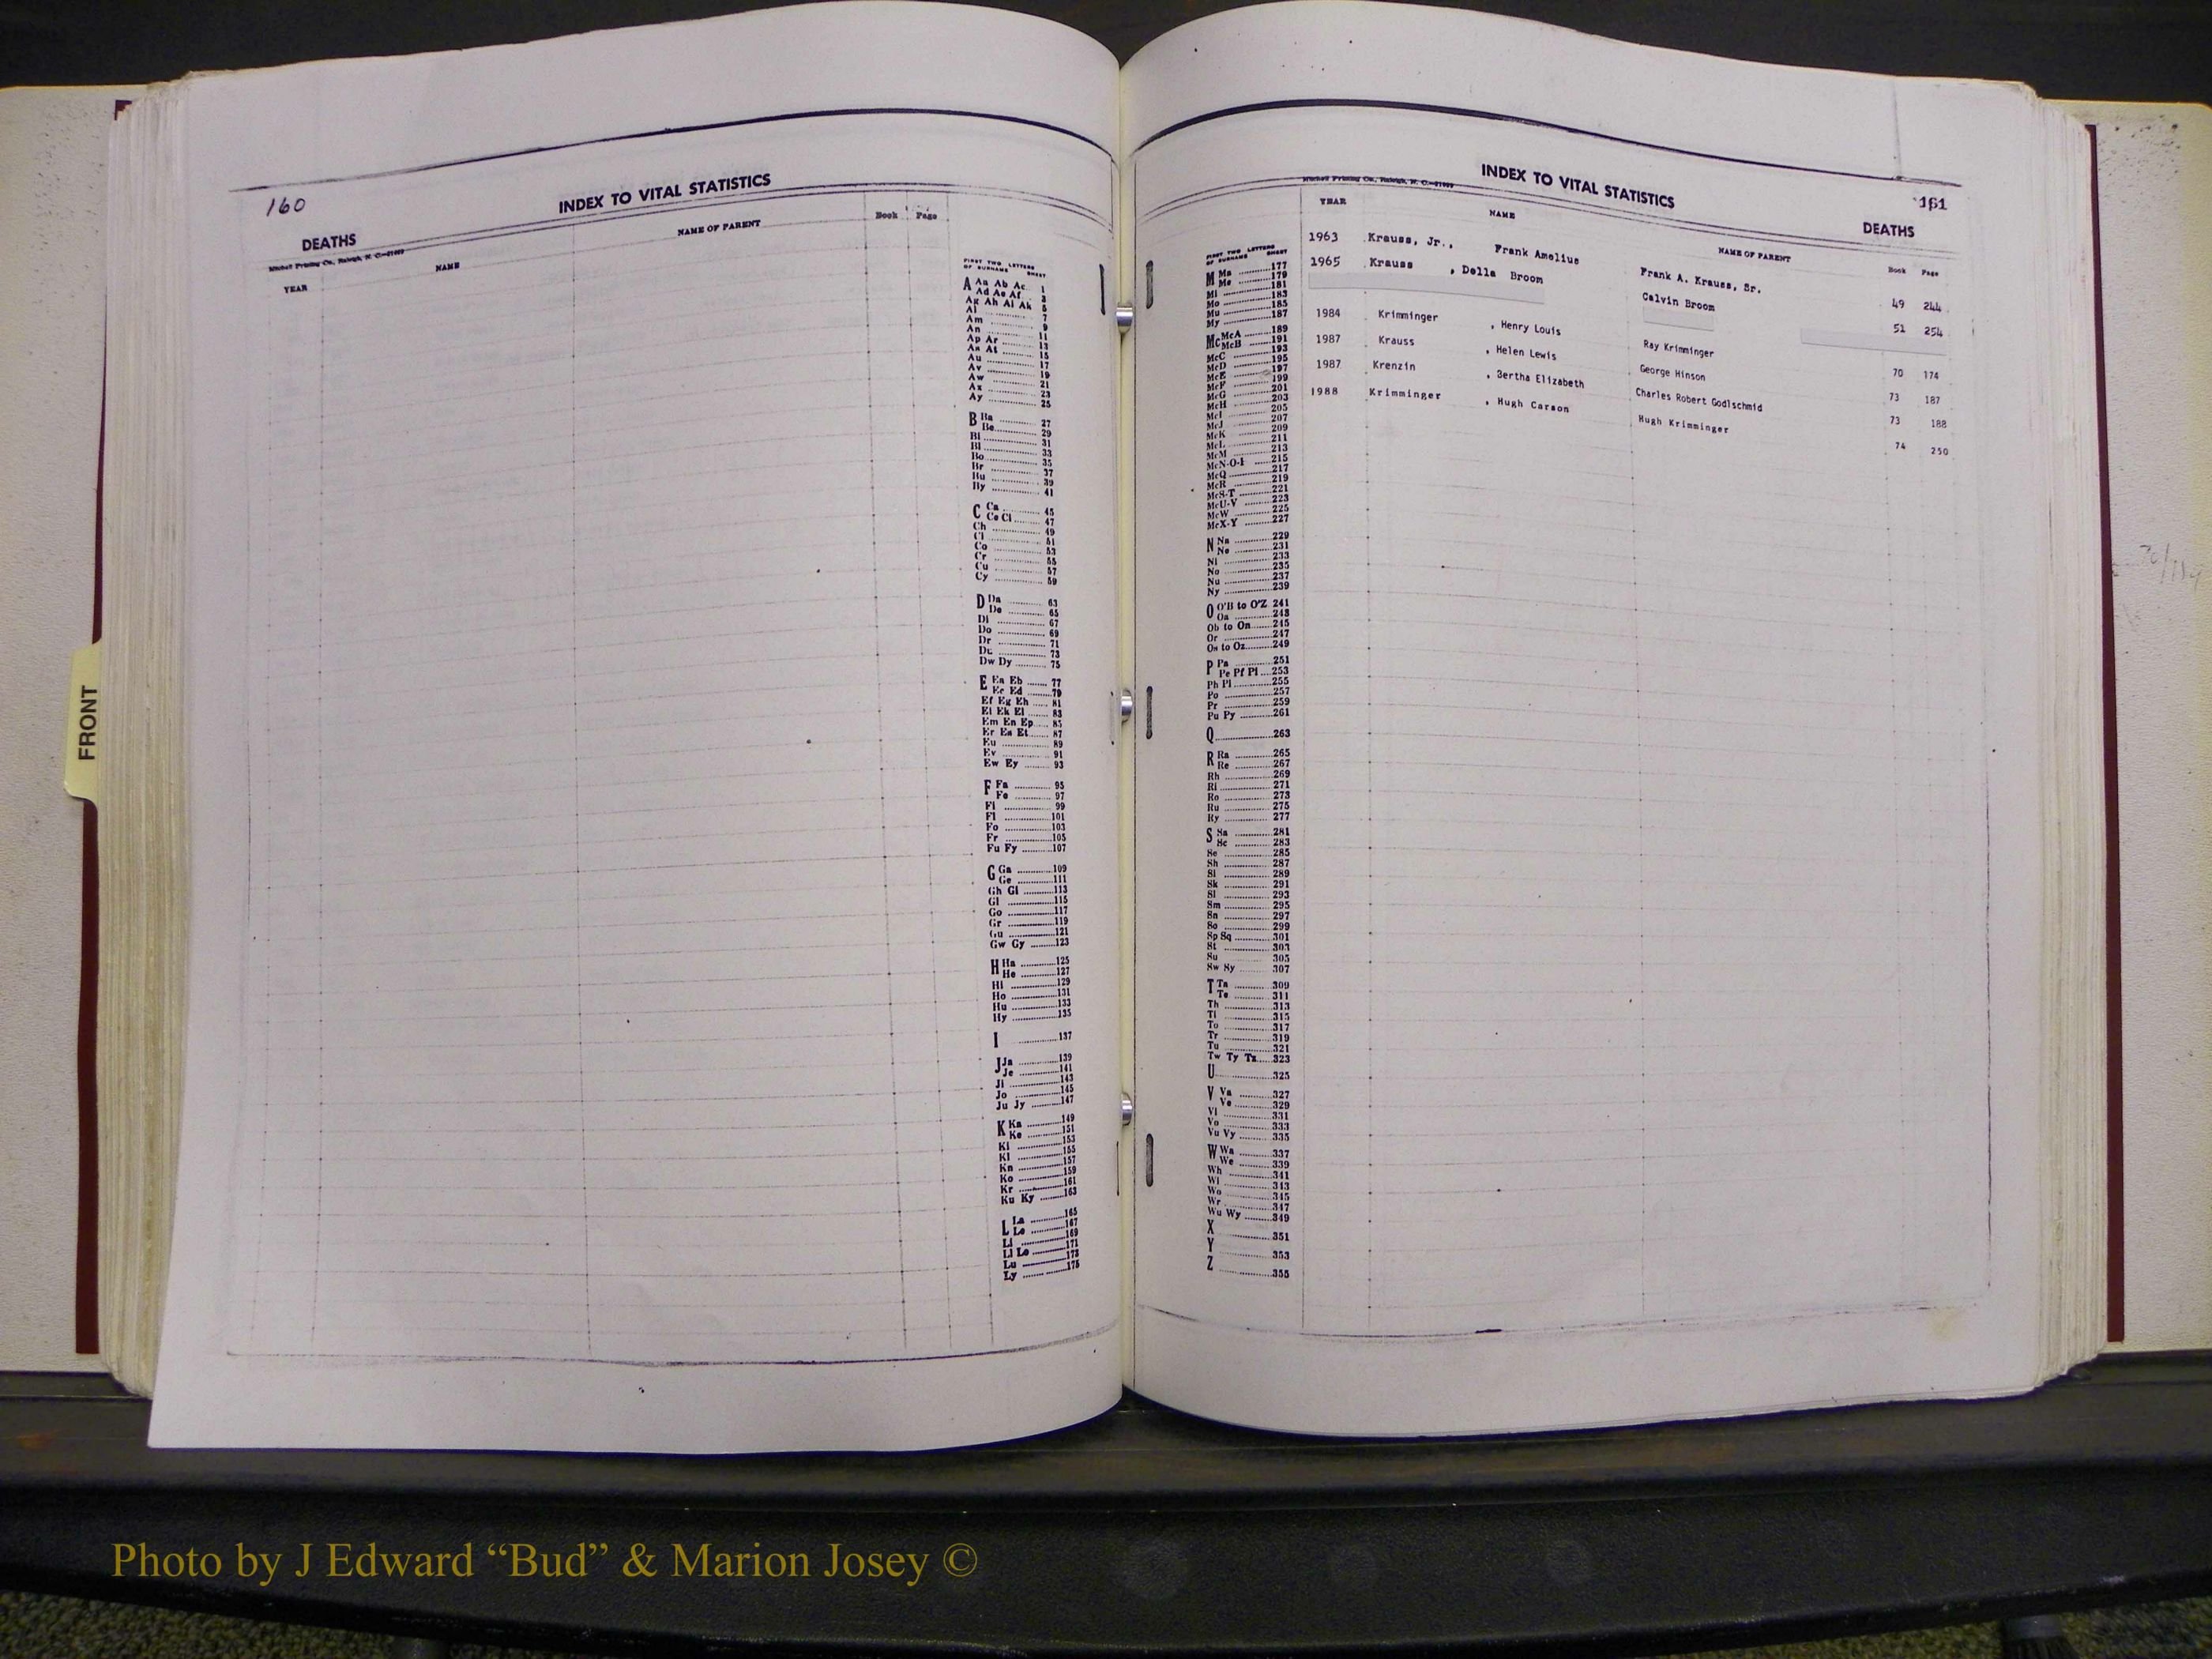 160
INDEX TO VITAL STATISTICS
DEATHS
Mitchell Printing Co., Raleigh, N. C.
YEAR
NAME
NAME OF PARENT
Book
Page
FIRST TWO LETTERS
OF SURNAME SHEET
A Aa Ab Ac 1
Ad Ae Af 3
Ag Ah Ai Ak 5
Al 7
Am 9
An 11
Ap Ar 13
As At 15
Au 17
Av 19
Aw 21
Ax 23
Ay 25
B Ba 27
Be 29
Bi 31
Bl 33
Bo 35
Br 37
Bu 39
By 41
C Ca 45
Ce Ci 47
Ch 49
Cl 51
Co 53
Cr 55
Cu 57
Cy 59
D Da 63
De 65
Di 67
Do 69
Dr 71
Du 73
Dw Dy 75
E Ea Eb 77
Ec Ed 79
Ef Eg Eh 81
Ei Ek El 83
Em En Ep 85
Er Es Et 87
Eu 89
Ev 91
Ew Ey 93
F Fa 95
Fe 97
Fi 99
Fl 101
Fo 103
Fr 105
Fu Fy 107
G Ga 109
Ge 111
Gh Gi 113
Gl 115
Go 117
Gr 119
Gu 121
Gw Gy 123
H Ha 125
He 127
Hi 129
Ho 131
Hu 133
Hy 135
I 137
J Ja 139
Je 141
Ji 143
Jo 145
Ju Jy 147
K Ka 149
Ke 151
Ki 153
Kl 155
Kn 157
Ko 159
Kr 161
Ku Ky 163
L La 165
Le 167
Li 169
Ll Lo 171
Lu 173
Ly 175
INDEX TO VITAL STATISTICS
161
DEATHS
Mitchell Printing Co., Raleigh, N. C.
YEAR
NAME
NAME OF PARENT
Book
Page
1963 Krauss, Jr., Frank Amelius Frank A. Krauss, Sr. 49 244
1965 Krauss , Della Broom Calvin Broom 51 254
1984 Krimminger , Henry Louis Ray Krimminger 70 174
1987 Krauss , Helen Lewis George Hinson 73 187
1987 Krenzin , Bertha Elizabeth Charles Robert Godlschmid 73 188
1988 Krimminger , Hugh Carson Hugh Krimminger 74 250
FIRST TWO LETTERS
OF SURNAME SHEET
M Ma 177
Me 179
Mi 181
Mo 183
Mu 185
My 187
Mc McA 189
McB 191
McC 193
McD 195
McE 197
McF 199
McG 201
McH 203
McI 205
McJ 207
McK 209
McL 211
McM 213
McN-O-P 215
McQ 217
McR 219
McS-T 221
McU-V 223
McW 225
McX-Y 227
N Na 229
Ne 231
Ni 233
No 235
Nu 237
Ny 239
O O'B to O'Z 241
Oa 243
Ob to On 245
Or 247
Os to Oz 249
P Pa 251
Pe Pf Pl 253
Ph Pi 255
Po 257
Pr 259
Pu Py 261
Q 263
R Ra 265
Re 267
Rh 269
Ri 271
Ro 273
Ru 275
Ry 277
S Sa 281
Sc 283
Se 285
Sh 287
Si 289
Sk 291
Sl 293
Sm 295
Sn 297
So 299
Sp Sq 301
St 303
Su 305
Sw Sy 307
T Ta 309
Te 311
Th 313
Ti 315
To 317
Tr 319
Tu 321
Tw Ty Tz 323
U 325
V Va 327
Ve 329
Vi 331
Vo 333
Vu Vy 335
W Wa 337
We 339
Wh 341
Wi 343
Wo 345
Wr 347
Wu Wy 349
X 351
Y 353
Z 355
FRONT
Photo by J Edward “Bud” & Marion Josey ©